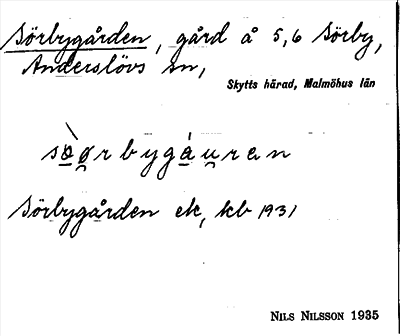 Sörbygården, gård å 5,6 Sörby,
Anderslövs sn,
Skytts härad, Malmöhus län
sòørbygáuran
Sörbygården ek, kb 1931
NILS NILSSON 1935